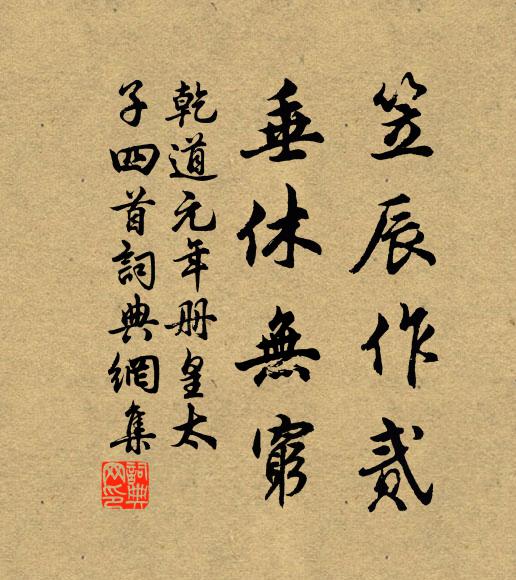 笠辰作貳
垂休無窮
乾道元年册皇太
子四首詞典網集
詞典網印